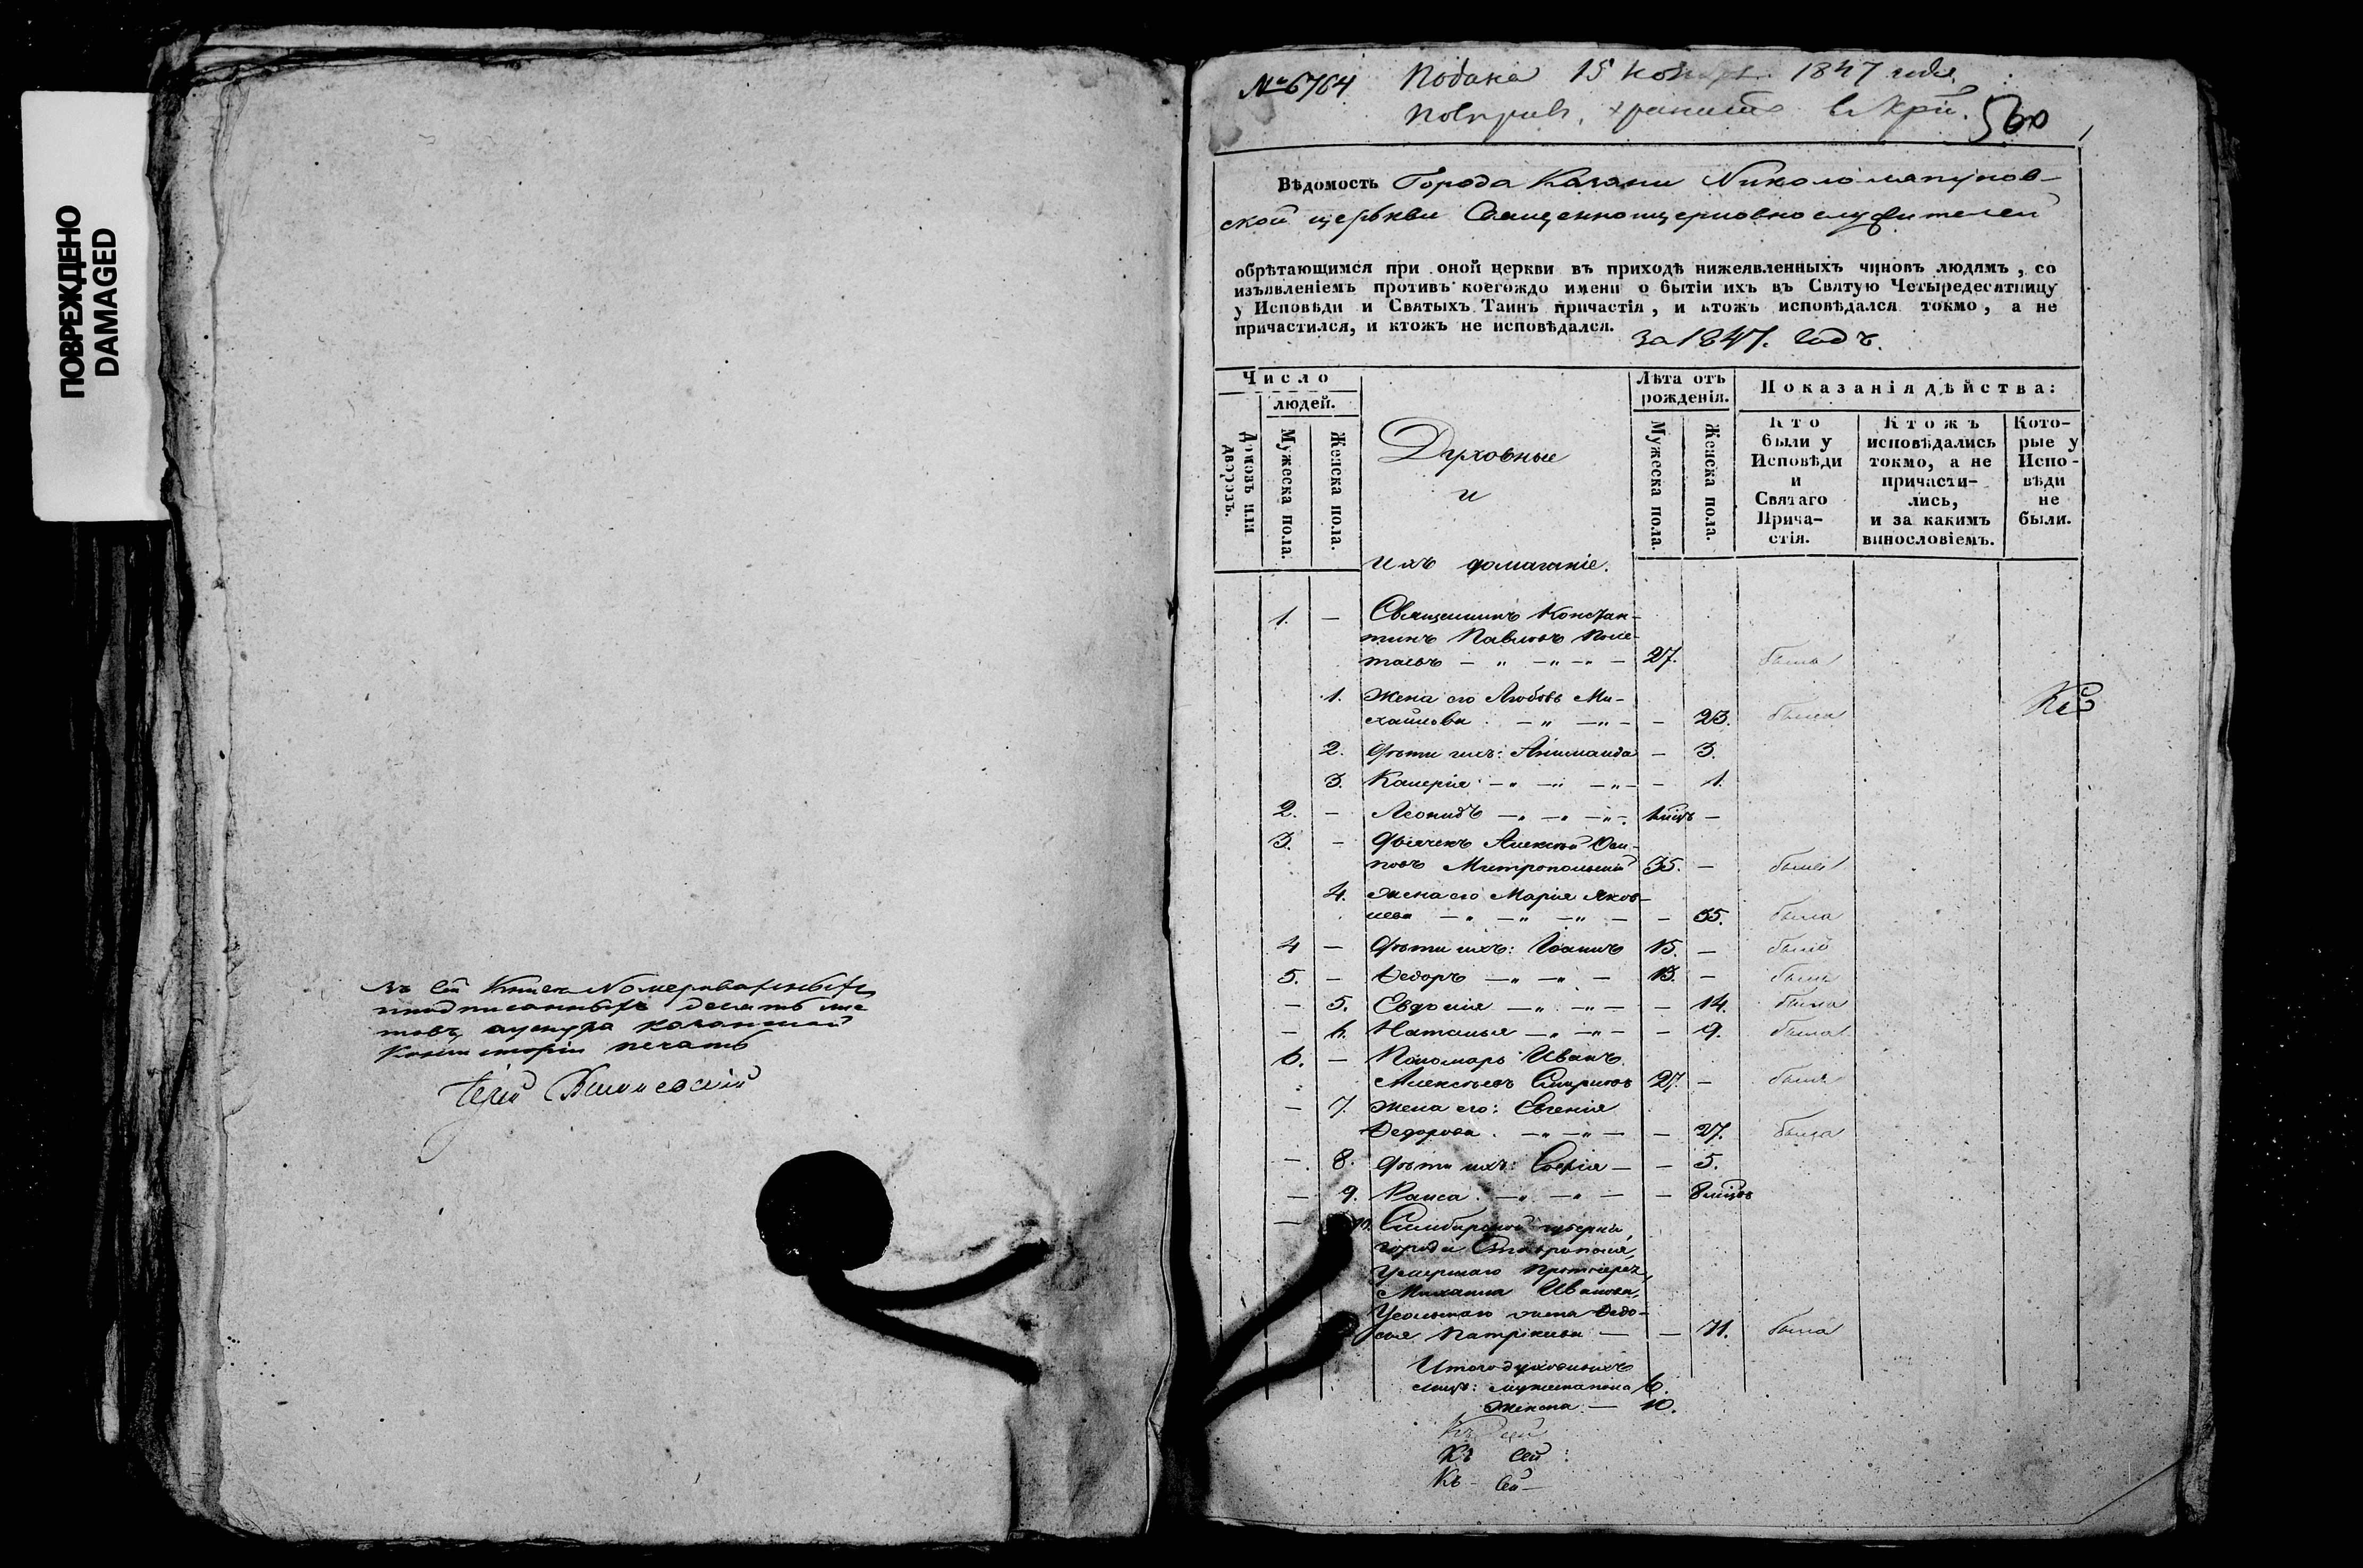 ПОВРЕЖДЕНО
DAMAGED
въ сей Книге Номерованныхъ
и подписанныхъ десять лис
товъ,
Консисторіи печать
№ 6764 Подана 15 ноября 1847 года
560
Вѣдомость Города Казани Никололяпунов-
ской церькви Священноцерковнослужителей
обрѣтающимся при оной церкви въ приходѣ нижеявленныхъ чиновъ людямъ, со
изъявленіемъ противъ коегождо имени о бытіи ихъ въ Святую Четыредесятницу
у Исповѣди и Святыхъ Таинъ причастія, и ктожъ исповѣдался токмо, а не
причастился, и ктожъ не исповѣдался.
за 1847. годъ.
Число
людей.
Домовъ или дворовъ.
Мужеска пола.
Женска пола.
Духовные
и
ихъ домашніе.
Лѣта отъ
рожденія.
Мужеска пола.
Женска пола.
Показанія дѣйства:
Кто
были у
Исповѣди
и
Святаго
Прича-
стія.
Ктожъ
исповѣдались
токмо, а не
причасти-
лись,
и за какимъ
винословіемъ.
Кото-
рые у
Испо-
вѣди
не
были.
1. — Священникъ Констан-
тинъ Павловъ Поле-
таевъ — „ — „ — „ — 27. былъ
1. Жена его Любовь Ми-
хайлова. — „ — „ — — 23. была
2. Дѣти ихъ: — 3.
3. Калерія — „ — „ — „ — — 1.
2. — Леонидъ — „ — „ — „ —
3. — Дьячекъ Алексѣй Оси-
повъ Митропольскій 35. — былъ
4. Жена его Марія Яков-
лева — „ — „ — „ — — 35. была
4 — Дѣти ихъ: Іоаннъ 15. — былъ
5. — Ѳедоръ — „ — „ — 13. — былъ
— 5. Евдокія — „ — „ — — 14. была
— 6. Наталья — „ — „ — — 9. была
6. — Пономарь Иванъ
Алексѣевъ Смирновъ 27. — былъ
— 7. Жена его: Евгенія
Ѳедорова. — „ — „ — — 27. была
— 8. Дѣти ихъ: Софія — — 5.
— 9. Раиса. — „ — „ — — 8 мѣсцъ
— 10. Симбирской губерніи,
города Ставрополя,
Умершаго Протоіерея,
Михаила Иванова,
Ѳедо-
сья — — 71. была
Итого духовныхъ
лицъ: мужеска пола 6.
Женска — 10.
Къ сей
Къ сей
Къ сей